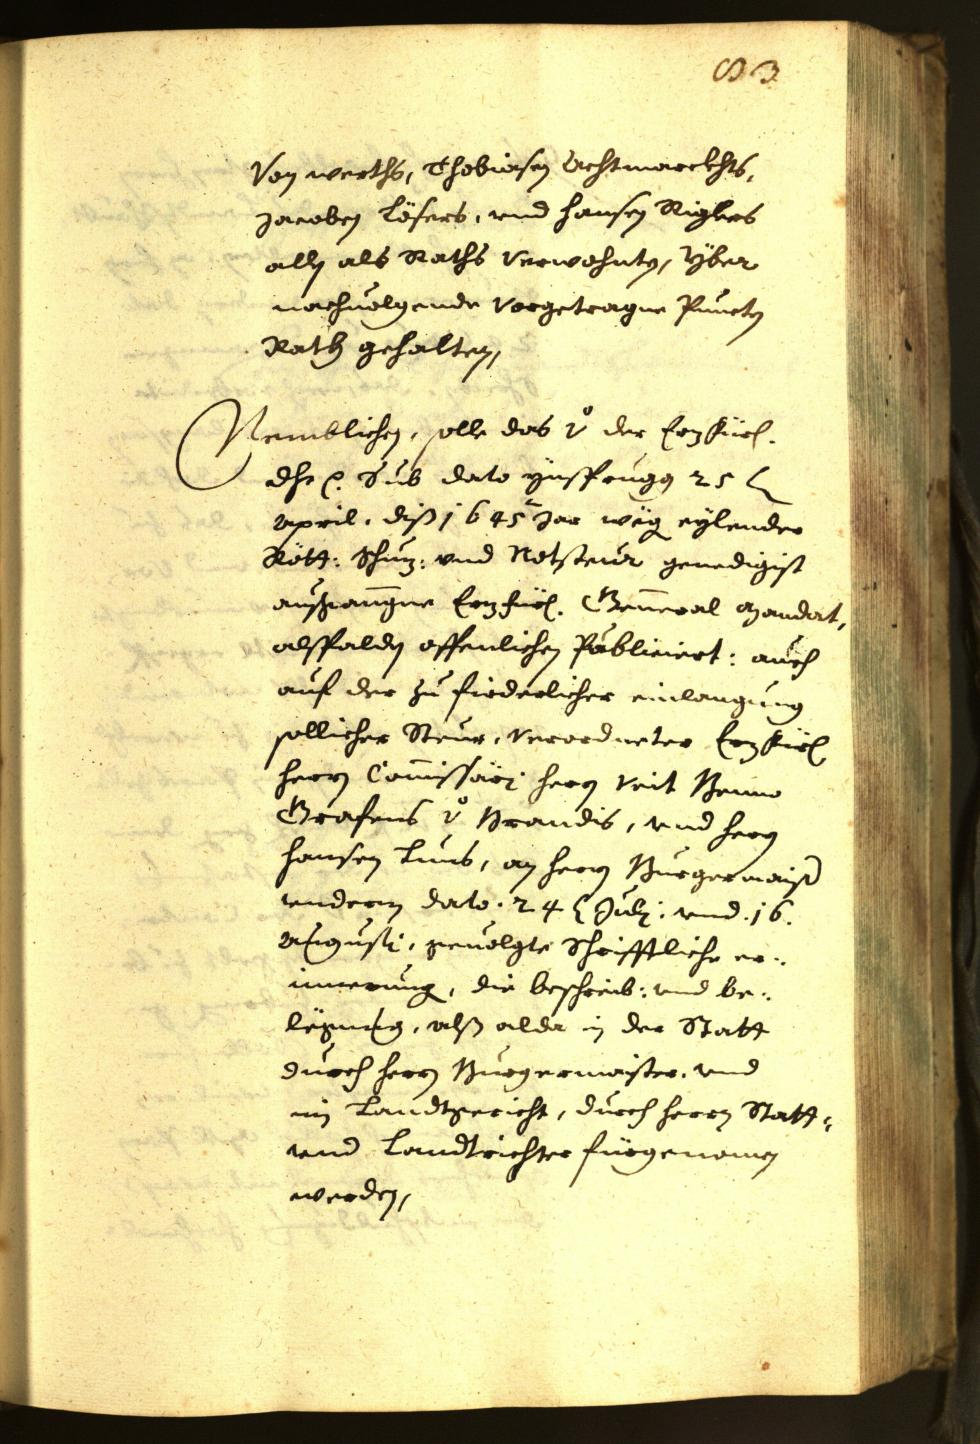 83
Von werths, Thobiasen Achtmarckhts,
Jacoben Lösers, vnd Hansen Riglers
alle als Raths verwohnte, Yber
nachuolgende vorgetragne Puncten
Rath gehalten,
Nemblichen, solle das vo der Erzfürl.
dht e. Sub dato Ynsprugg 25
April. diß 1645 Jar weg eylender
Rött: Schuz: vnd Notsteur genedigist
außgangne Erzfürl. General Mandat,
alspalden offenlichen Publiciert: auch
auf der zu fürderlicher einlangung
sollicher Steur, verordneter Erzfürl
herrn Comissarj herrn Veit Benno
Grafens vo Brandis, vnd herrn
Hansen Luns, an herrn Burgermaister
vnderm dato. 24 Julj. vnd. 16.
Augustj, geuolgte Schrifftliche er:
innerung, die beschreib: vnd be:
legung, alß alda in der Statt
durch herrn Burgermaister. vnd
im Landtgericht, durch herrn Statt:
vnd Landtrichter fürgenomen
werden,